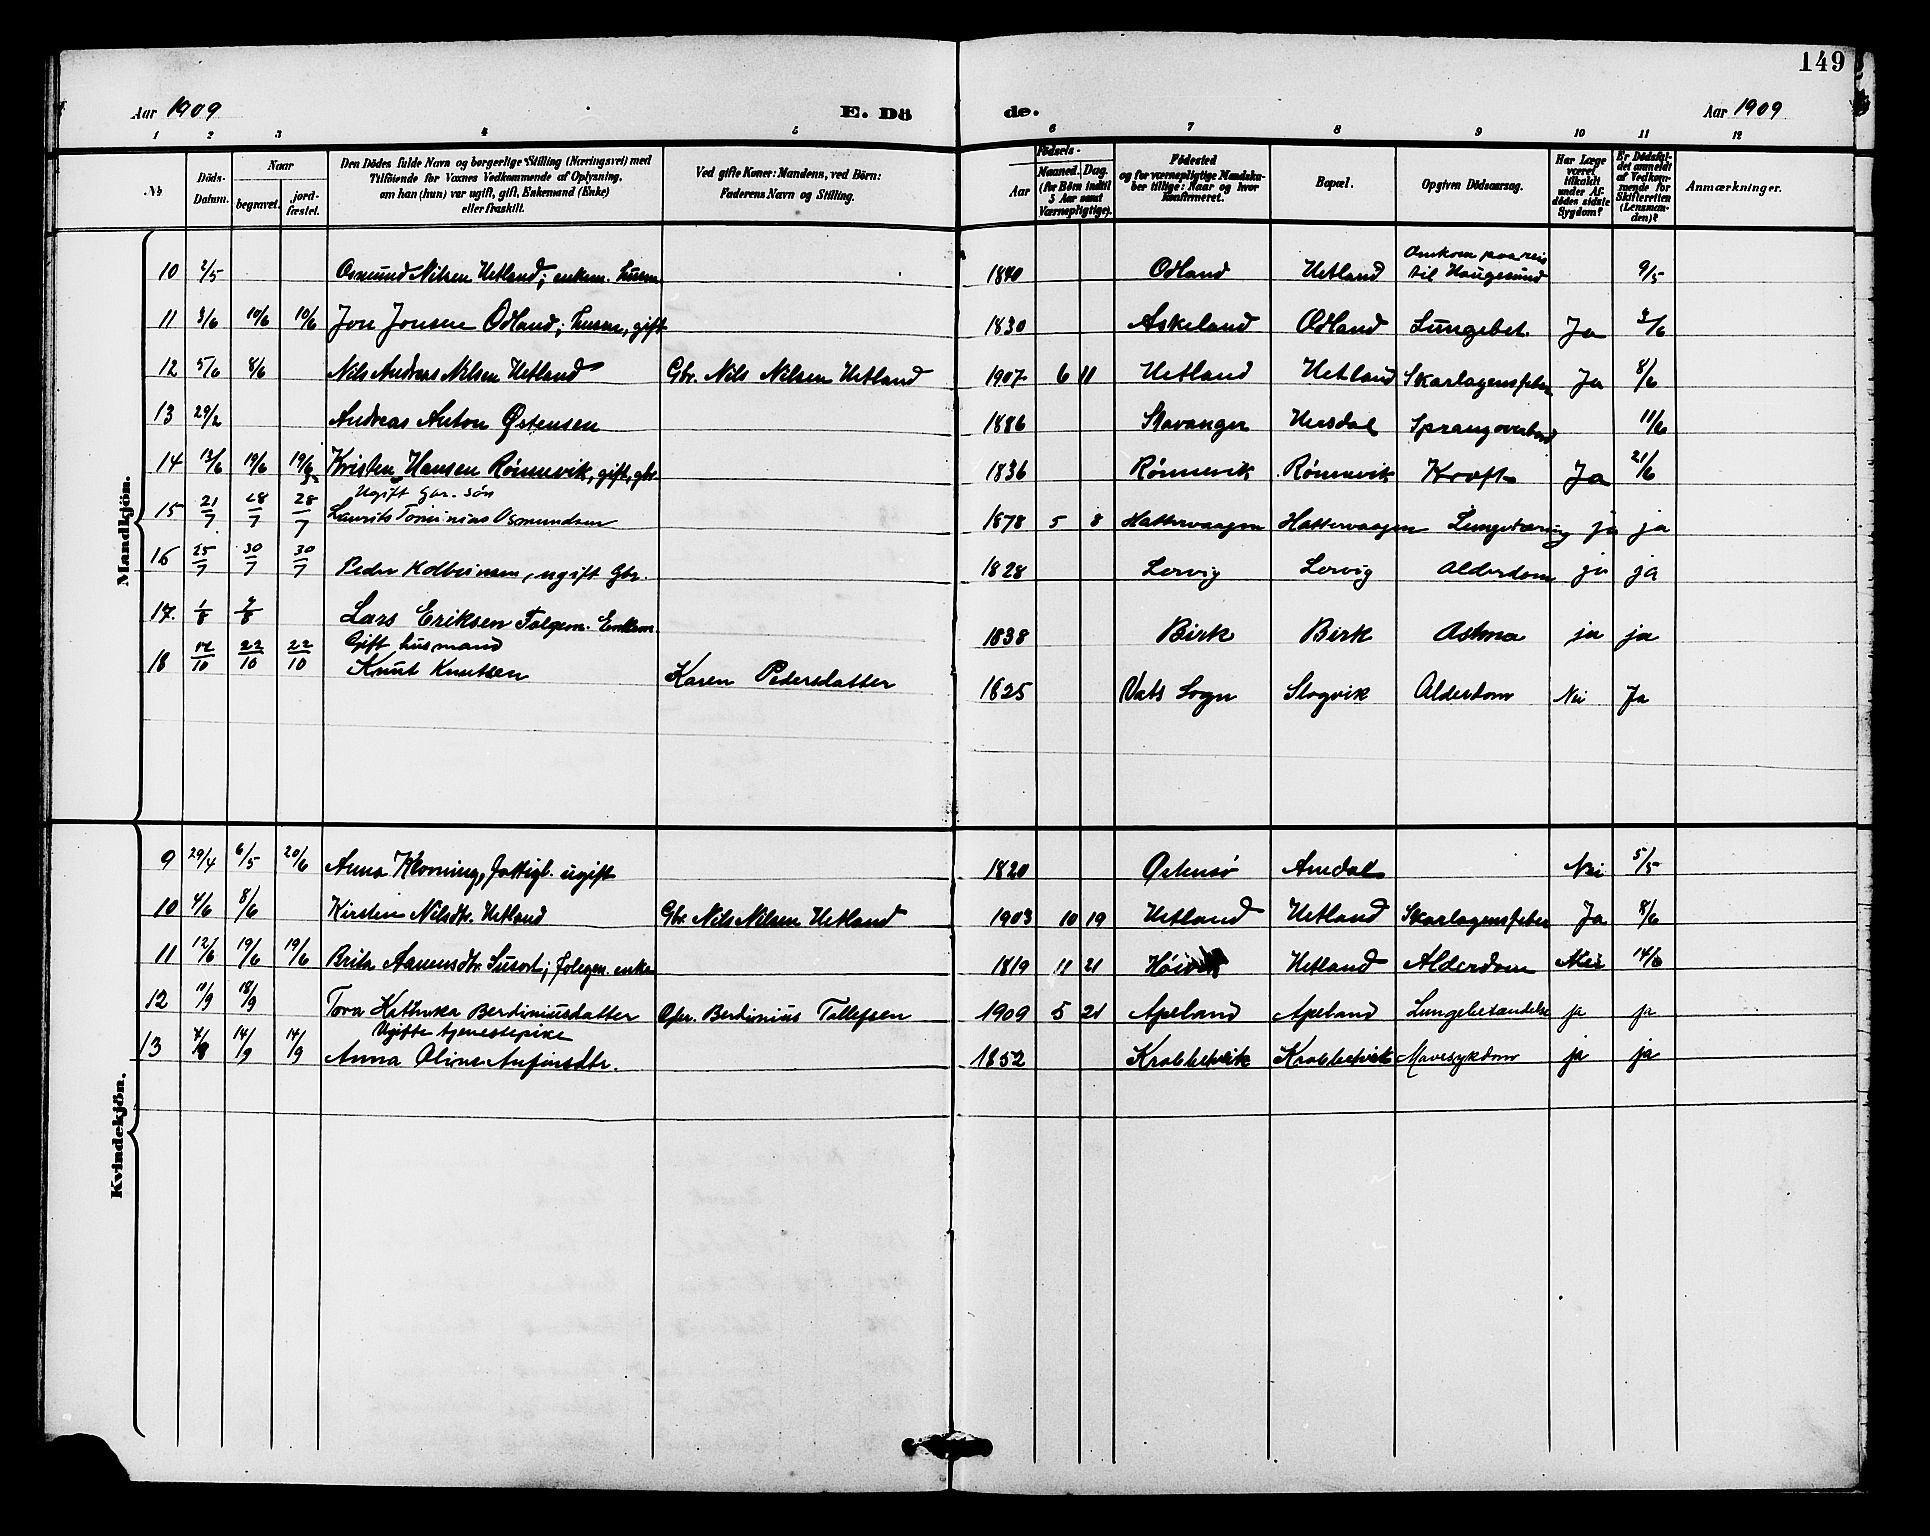 149
Aar 1909 E. Dö de. Aar 1909
1 2 3 4 5 6 7 8 9 10 11 12
№ Döds-Datum. Naar begravet. jord-fæstet. Den Dödes fulde Navn og borgerlige Stilling (Næringsvei) med Tilföiende for Voxnes Vedkommende af Oplysning, om han (hun) var ugift, gift, Enkemand (Enke) eller fraskilt. Ved gifte Koner: Mandens, ved Börn: Faderens Navn og Stilling. Aar Födsels- Maaned. Dag. (for Börn indtil 5 Aar samt Værnepligtige). Födested og for værnepligtige Mandskaber tillige: Naar og hvor konfirmeret. Bopæl. Opgiven Dödsaarsag. Har Læge været tilkaldt under Afdödes sidste Sygdom? Er Dödsfaldet anmeldt af Vedkommende for Skifteretten (Lensmanden)? Anmærkninger.
Mandkjön.
10 2/5 Osmund Nilsen Hetland; enkem. husm. 1840 Odland Hetland Omkom paa reis til Haugesund 9/5
11 3/6 10/6 10/6 Jon Jonsen Odland; husm, gift 1830 Askeland Odland Lungebet. Ja 3/6
12 5/6 8/6 Nils Andreas Nilsen Hetland Gbr. Nils Nilsen Hetland 1907 6 11 Hetland Hetland Skarlagensfeber Ja 8/6
13 29/2 Andreas Anton Østensen 1886 Stavanger Sprangoverbord 11/6
14 13/6 19/6 19/6 Kristen Hansen Rönnevik, gift, gbr. 1836 Rönnevik Rönnevik Kræft Ja 21/6
Ugift Gbr. søn
15 21/7 28/7 28/7 Laurits Osmundsen 1878 5 8 Hattervaagen Hattervaagen Lungetæring ja ja
16 25/7 30/7 30/7 Peder Kolbeinsen, ugift Gbr. 1828 Lervig Lervig Alderdom ja ja
17. 1/8 7/8 Lars Eriksen Folgem. Enkem. 1838 Birk Birk Astma ja ja
Gift husmand
18 17/10 22/10 22/10 Knut Knutsen Karen Pedersdatter 1825 Vats Sogn Slogvik Alderdom Nei Ja
Kvindekjön.
9 29/4 6/5 20/6 Anna Klovning, fattigl. ugift 1820 Ølensø Amdal Nei 5/5
10 4/6 8/6 Kirsten Nilsdtr. Hetland Gbr Nils Nilsen Hetland 1903 10 19 Hetland Hetland Skarlagensfeber Ja 8/6
11 12/6 19/6 19/6 Brita Aanensdtr Susort; folgem. enke 1819 11 21 Hetland Alderdom Nei 14/6
12 11/9 18/9 Tora Kathrika Berdiniusdatter Gbr. Berdinius Tollefsen 1909 5 21 Apeland Apeland Lungebetændelse ja ja
Ugifte tjenestepike
13 14/9 14/9 Anna Oline Anfinsdtr. 1852 Krabbetveit Krabbetveit Mavesykdom ja ja